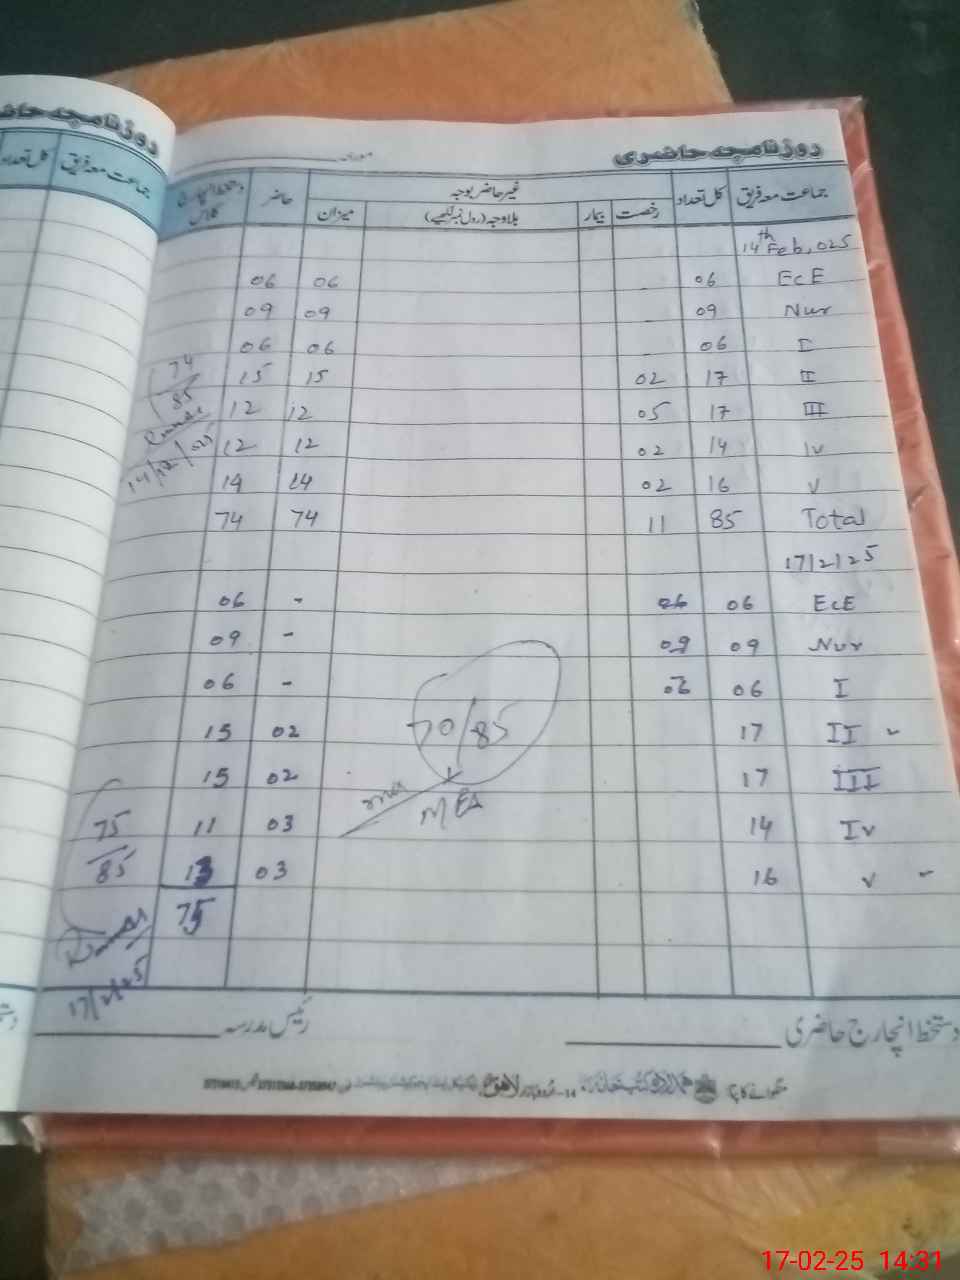 روزنامچہ حاضری
روزنامچہ حاضری مورخہ
جماعت معہ فریق کل تعداد
جماعت معہ فریق کل تعداد غیر حاضر بوجہ حاضر دستخط انچارج کلاس
رخصت بیمار بلاوجہ (رول نمبر لکھیے) میزان
14th Feb, 025
EcE 06 06 06
Nur 09 09 09
I 06 06 06
II 17 02 15 15
III 17 05 12 12
IV 14 02 12 12
V 16 02 14 14
Total 85 11 74 74
74
85
14/2/025
17/2/25
EcE 06 06 - 06
Nur 09 09 - 09
I 06 06 - 06
II 17 02 15
III 17 02 15
IV 14 03 11
V 16 03 13
75
70/85
MEA
75
85
17/2/25
دستخط انچارج حاضری رئیس مدرسہ
منگوانے کا پتہ
لاہور
17-02-25 14:31